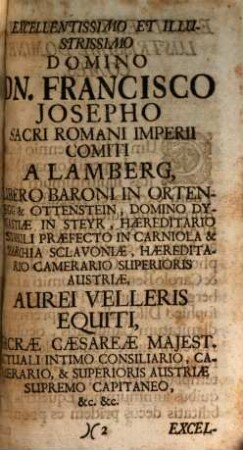 EXCELLENTISSIMO ET ILLU-
STRISSIMO
DOMINO
DN. FRANCISCO
JOSEPHO
SACRI ROMANI IMPERII
COMITI
A LAMBERG,
LIBERO BARONI IN ORTEN-
EGG & OTTENSTEIN, DOMINO DY-
NASTIÆ IN STEYR, HÆREDITARIO
STABULI PRÆFECTO IN CARNIOLA &
MARCHIA SCLAVONIÆ, HÆREDITA-
RIO CAMERARIO SUPERIORIS
AUSTRIÆ,
AUREI VELLERIS
EQUITI,
SACRÆ CÆSAREÆ MAJEST.
ACTUALI INTIMO CONSILIARIO, CA-
MERARIO, & SUPERIORIS AUSTRIÆ
SUPREMO CAPITANEO,
&c. &c.
)( 2 EXCEL-